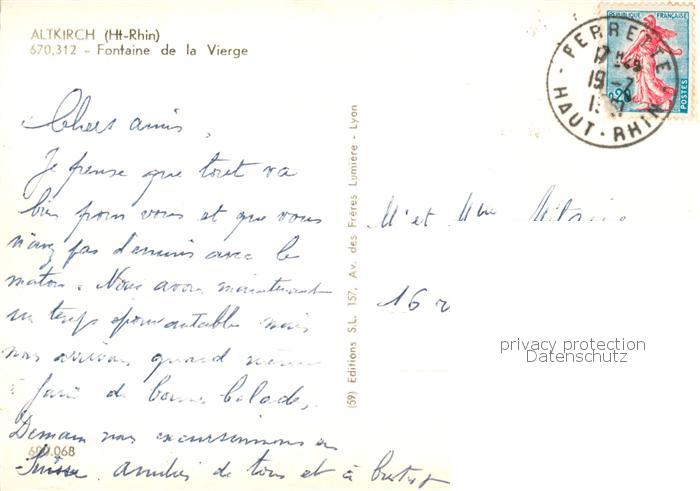 ALTKIRCH (Ht-Rhin)
670,312 - Fontaine de la Vierge
REPUBLIQUE FRANÇAISE
0,20
POSTES
FERRETTE
17H45
19-7
HAUT-RHIN
Chers amis,
Je pense que tout va
bien pour vous et que vous
n'avez pas d'ennuis avec le
. Nous avons maintenant
un temps épouvantable mais
nous arrivons quand même
à faire de bonnes balades.
Demain nous excursionnons en
Suisse. amitiés de tous et à bientôt
609.068
(59) Editions S.L. 157, Av. des Frères Lumière - Lyon
Mr et Mme
16 r
privacy protection
Datenschutz